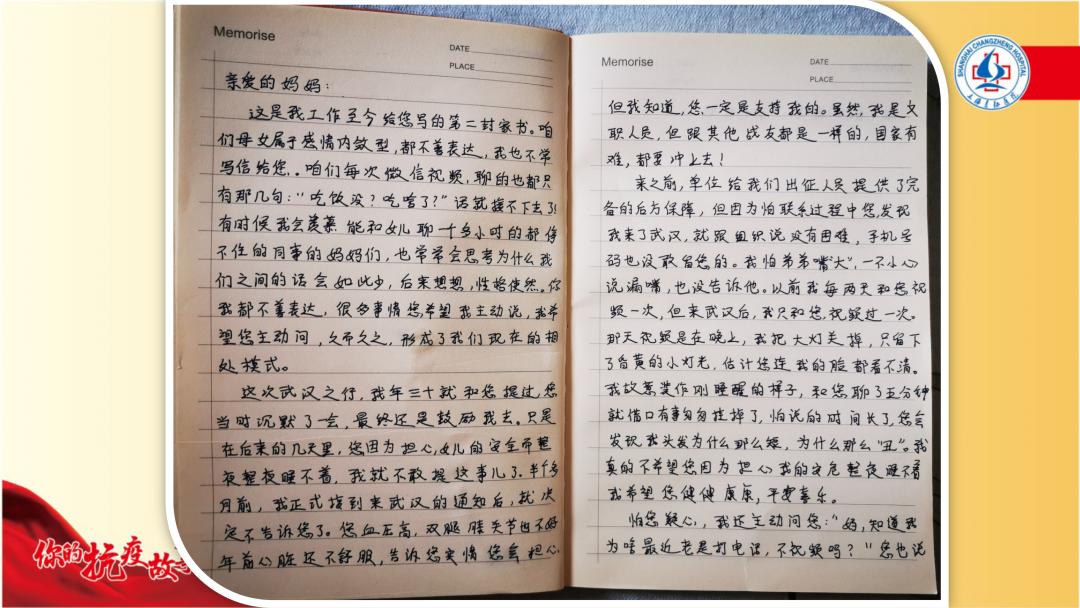 Memorise
DATE
PLACE
亲爱的妈妈:
这是我工作至今给您写的第二封家书。咱
们母女属于感情内敛型,都不善表达,我也不常
写信给您.。咱们每次微信视频,聊的也都只
有那几句:“吃饭没?吃啥了?”话就接不下去了!
有时候我会羡慕能和女儿聊一个多小时的都停
不住的同事的妈妈们,也常常会思考为什么我
们之间的话会如此少,后来想想,性格使然。你
我都不善表达,很多事情您希望我主动说,我希
望您主动问,久而久之,形成了我们现在的相
处模式。
这次武汉之行,我年三十就和您提过,您
当时沉默了一会,最终还是鼓励我去。只是
在后来的几天里,您因为担心女儿的安全而整
夜整夜睡不着,我就不敢提这事儿了。半个多
月前,我正式接到来武汉的通知后,就决
定不告诉您了。您血压高,双腿膝关节也不好
年前心脏还不舒服,告诉您实情您会担心,
Memorise
DATE
PLACE
但我知道,您一定是支持我的。虽然,我是文
职人员,但跟其他战友都是一样的,国家有
难,都要冲上去!
来之前,单位给我们出征人员提供了完
备的后方保障,但因为怕联系过程中您发现
我来了武汉,就跟组织说没有困难,手机号
码也没敢留您的。我怕弟弟嘴“大”,一不小心
说漏嘴,也没告诉他。以前我每两天和您视
频一次,但来武汉后,我只和您视频过一次。
那天视频是在晚上,我把大灯关掉,只留下
了昏黄的小灯光,估计您连我的脸都看不清。
我故意装作刚睡醒的样子,和您聊了五分钟
就借口有事匆匆挂掉了,怕说的时间长了,您会
发现我头发为什么那么短,为什么那么“丑”。我
真的不希望您因为担心我的安危整夜睡不着
我希望您健健康康,平安喜乐。
怕您疑心,我还主动问您:“妈,知道我
为啥最近老是打电话,不视频吗?”您也说
SHANGHAI CHANGZHENG HOSPITAL
上海长征医院
你的抗疫故事